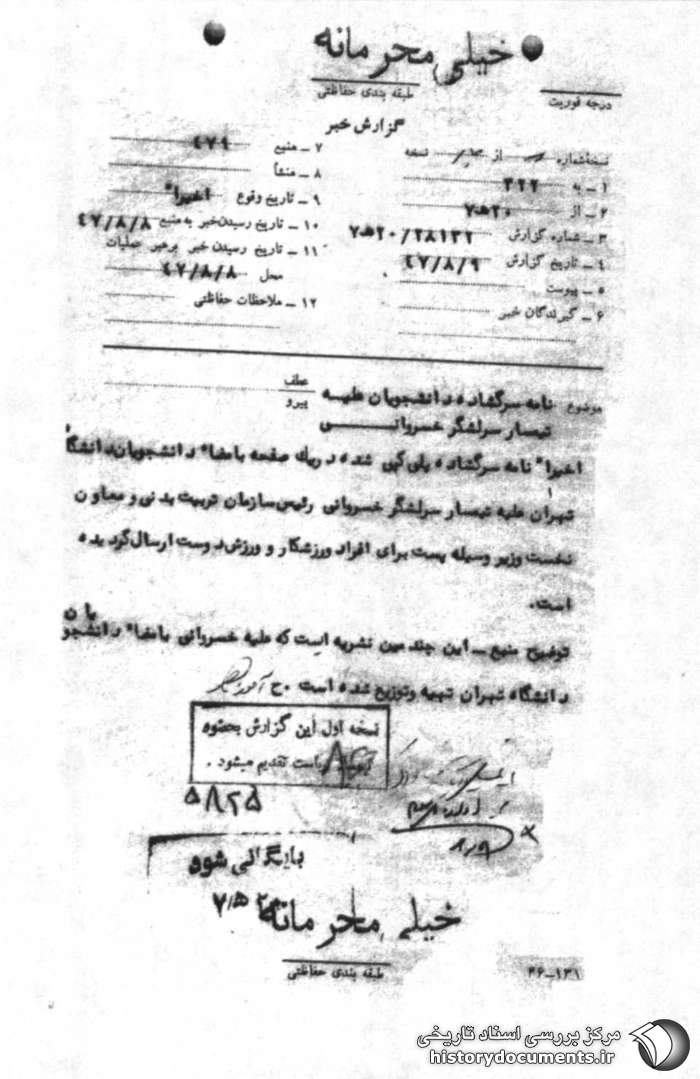 خیلی محرمانه
طبقه بندی حفاظتی
درجه فوریت
گزارش خبر
نسخه شماره از نسخه
۱ ـ به ۳۲۲
۲ ـ از ۲۰ه‍۷
۳ ـ شماره گزارش ۲۸۱۳۲/۲۰ه‍۷
۴ ـ تاریخ گزارش ۴۷/۸/۹
۵ ـ پیوست
۶ ـ گیرندگان خبر
۷ ـ منبع ۴۷۹
۸ ـ منشأ
۹ ـ تاریخ وقوع اخیراً
۱۰ ـ تاریخ رسیدن خبر به منبع ۴۷/۸/۸
۱۱ ـ تاریخ رسیدن خبر برهبر عملیات
محل ۴۷/۸/۸
۱۲ ـ ملاحظات حفاظتی
موضوع نامه سرگشاده دانشجویان علیه
تیمسار سرلشگر خسروانی
عطف
پیرو
اخیراً نامه سرگشاده پلی کپی شده در یک صفحه بامضاء دانشجویان دانشگاه
تهران علیه تیمسار سرلشگر خسروانی رئیس سازمان تربیت بدنی و معاون
نخست وزیر وسیله پست برای افراد ورزشکار و ورزش دوست ارسال گردیده
است.
توضیح منبع ـ این چندمین نشریه است که علیه خسروانی بامضاء دانشجویان
دانشگاه تهران تهیه و توزیع شده است. ح
نسخه اول این گزارش بعضوه
ریاست تقدیم میشود.
۵۸۲۵
بایگانی شود
۲۰ه‍۷
خیلی محرمانه
طبقه بندی حفاظتی
۴۶-۱۳۱
مرکز بررسی اسناد تاریخی
historydocuments.ir